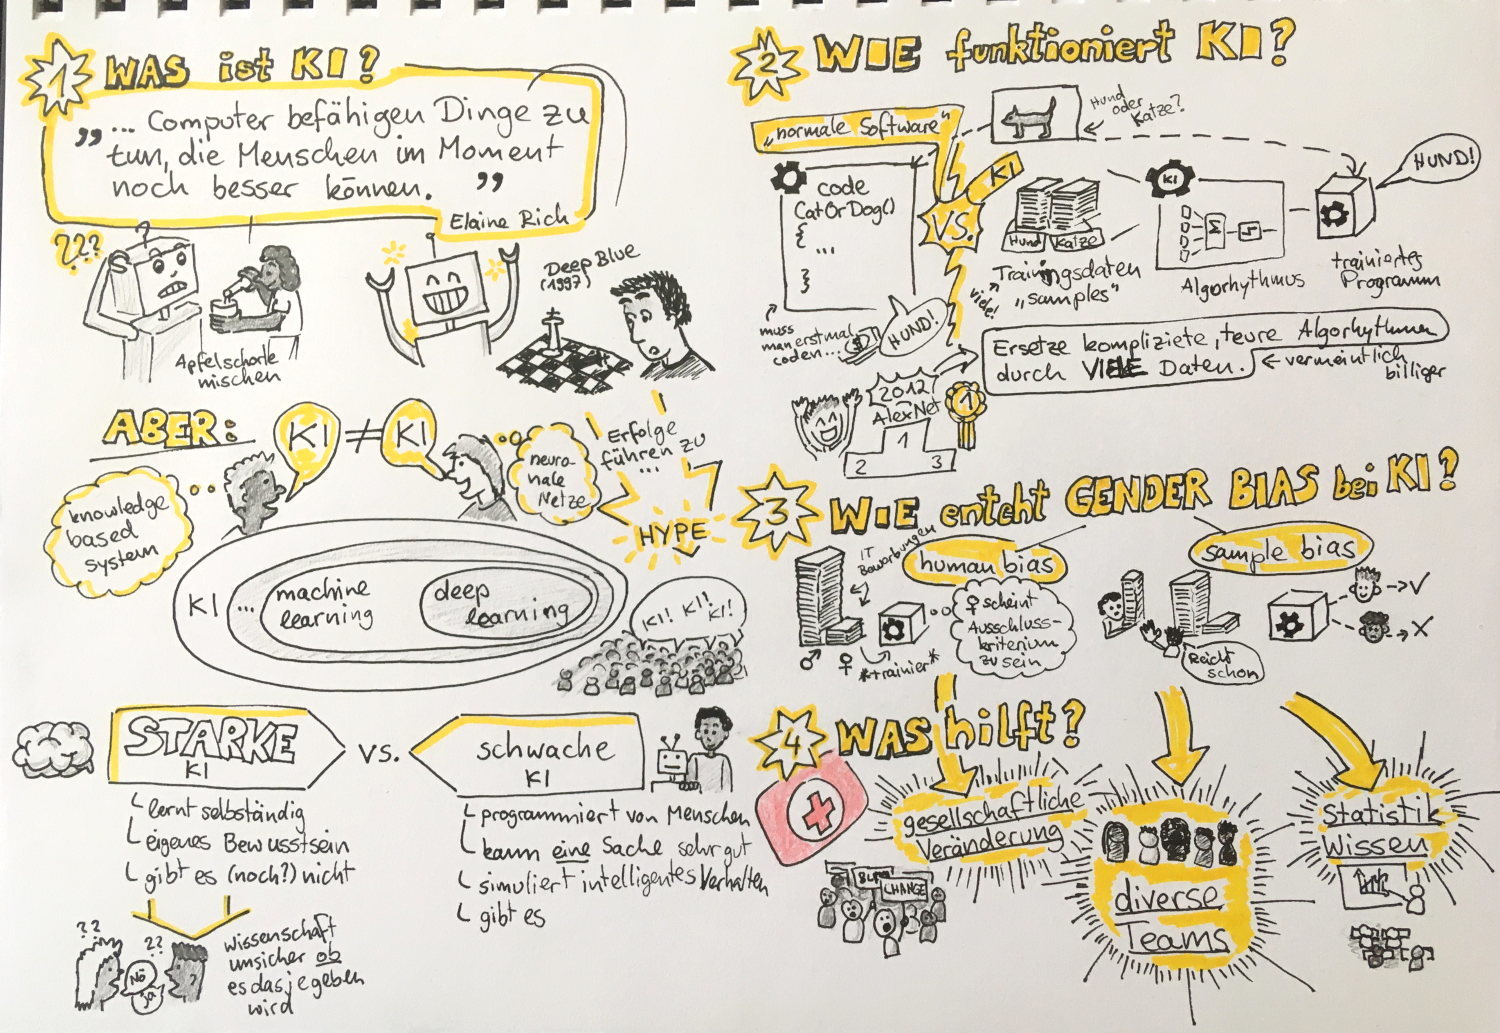 1 WAS ist KI?
„... Computer befähigen Dinge zu
tun, die Menschen im Moment
noch besser können."
Elaine Rich
???
?
Apfelschorle
mischen
Deep Blue
(1997)
ABER:
KI ≠ KI
knowledge
based
system
neuro-
nale
Netze
Erfolge
führen zu
...
HYPE
KI ...
machine
learning
deep
learning
KI! KI! KI!
STARKE
KI
vs.
schwache
KI
lernt selbständig
eigenes Bewusstsein
gibt es (noch?) nicht
programmiert von Menschen
kann eine Sache sehr gut
simuliert intelligentes Verhalten
gibt es
??
??
Nö
Ja
Wissenschaft
unsicher ob
es das je geben
wird
2 WIE funktioniert KI?
„normale Software"
VS.
KI
Hund
oder
Katze?
code
CatOrDog()
{
...
}
muss
man erstmal
coden...
$
HUND!
Hund
Katze
Trainingsdaten
„samples"
viele!
KI
Σ
Algorhythmus
trainiertes
Programm
HUND!
Ersetze komplizierte, teure Algorhythmen
durch VIELE Daten.
vermeintlich
billiger
2012
AlexNet
1
1
2
3
3 WIE entsteht GENDER BIAS bei KI?
human bias
IT
Bewerbungen
♂
♀
*trainier*
♀ scheint
Ausschluss-
kriterium
zu sein
sample bias
Reicht
schon
→ V
→ X
4 WAS hilft?
gesellschaftliche
Veränderung
CHANGE
diverse
Teams
Statistik
Wissen